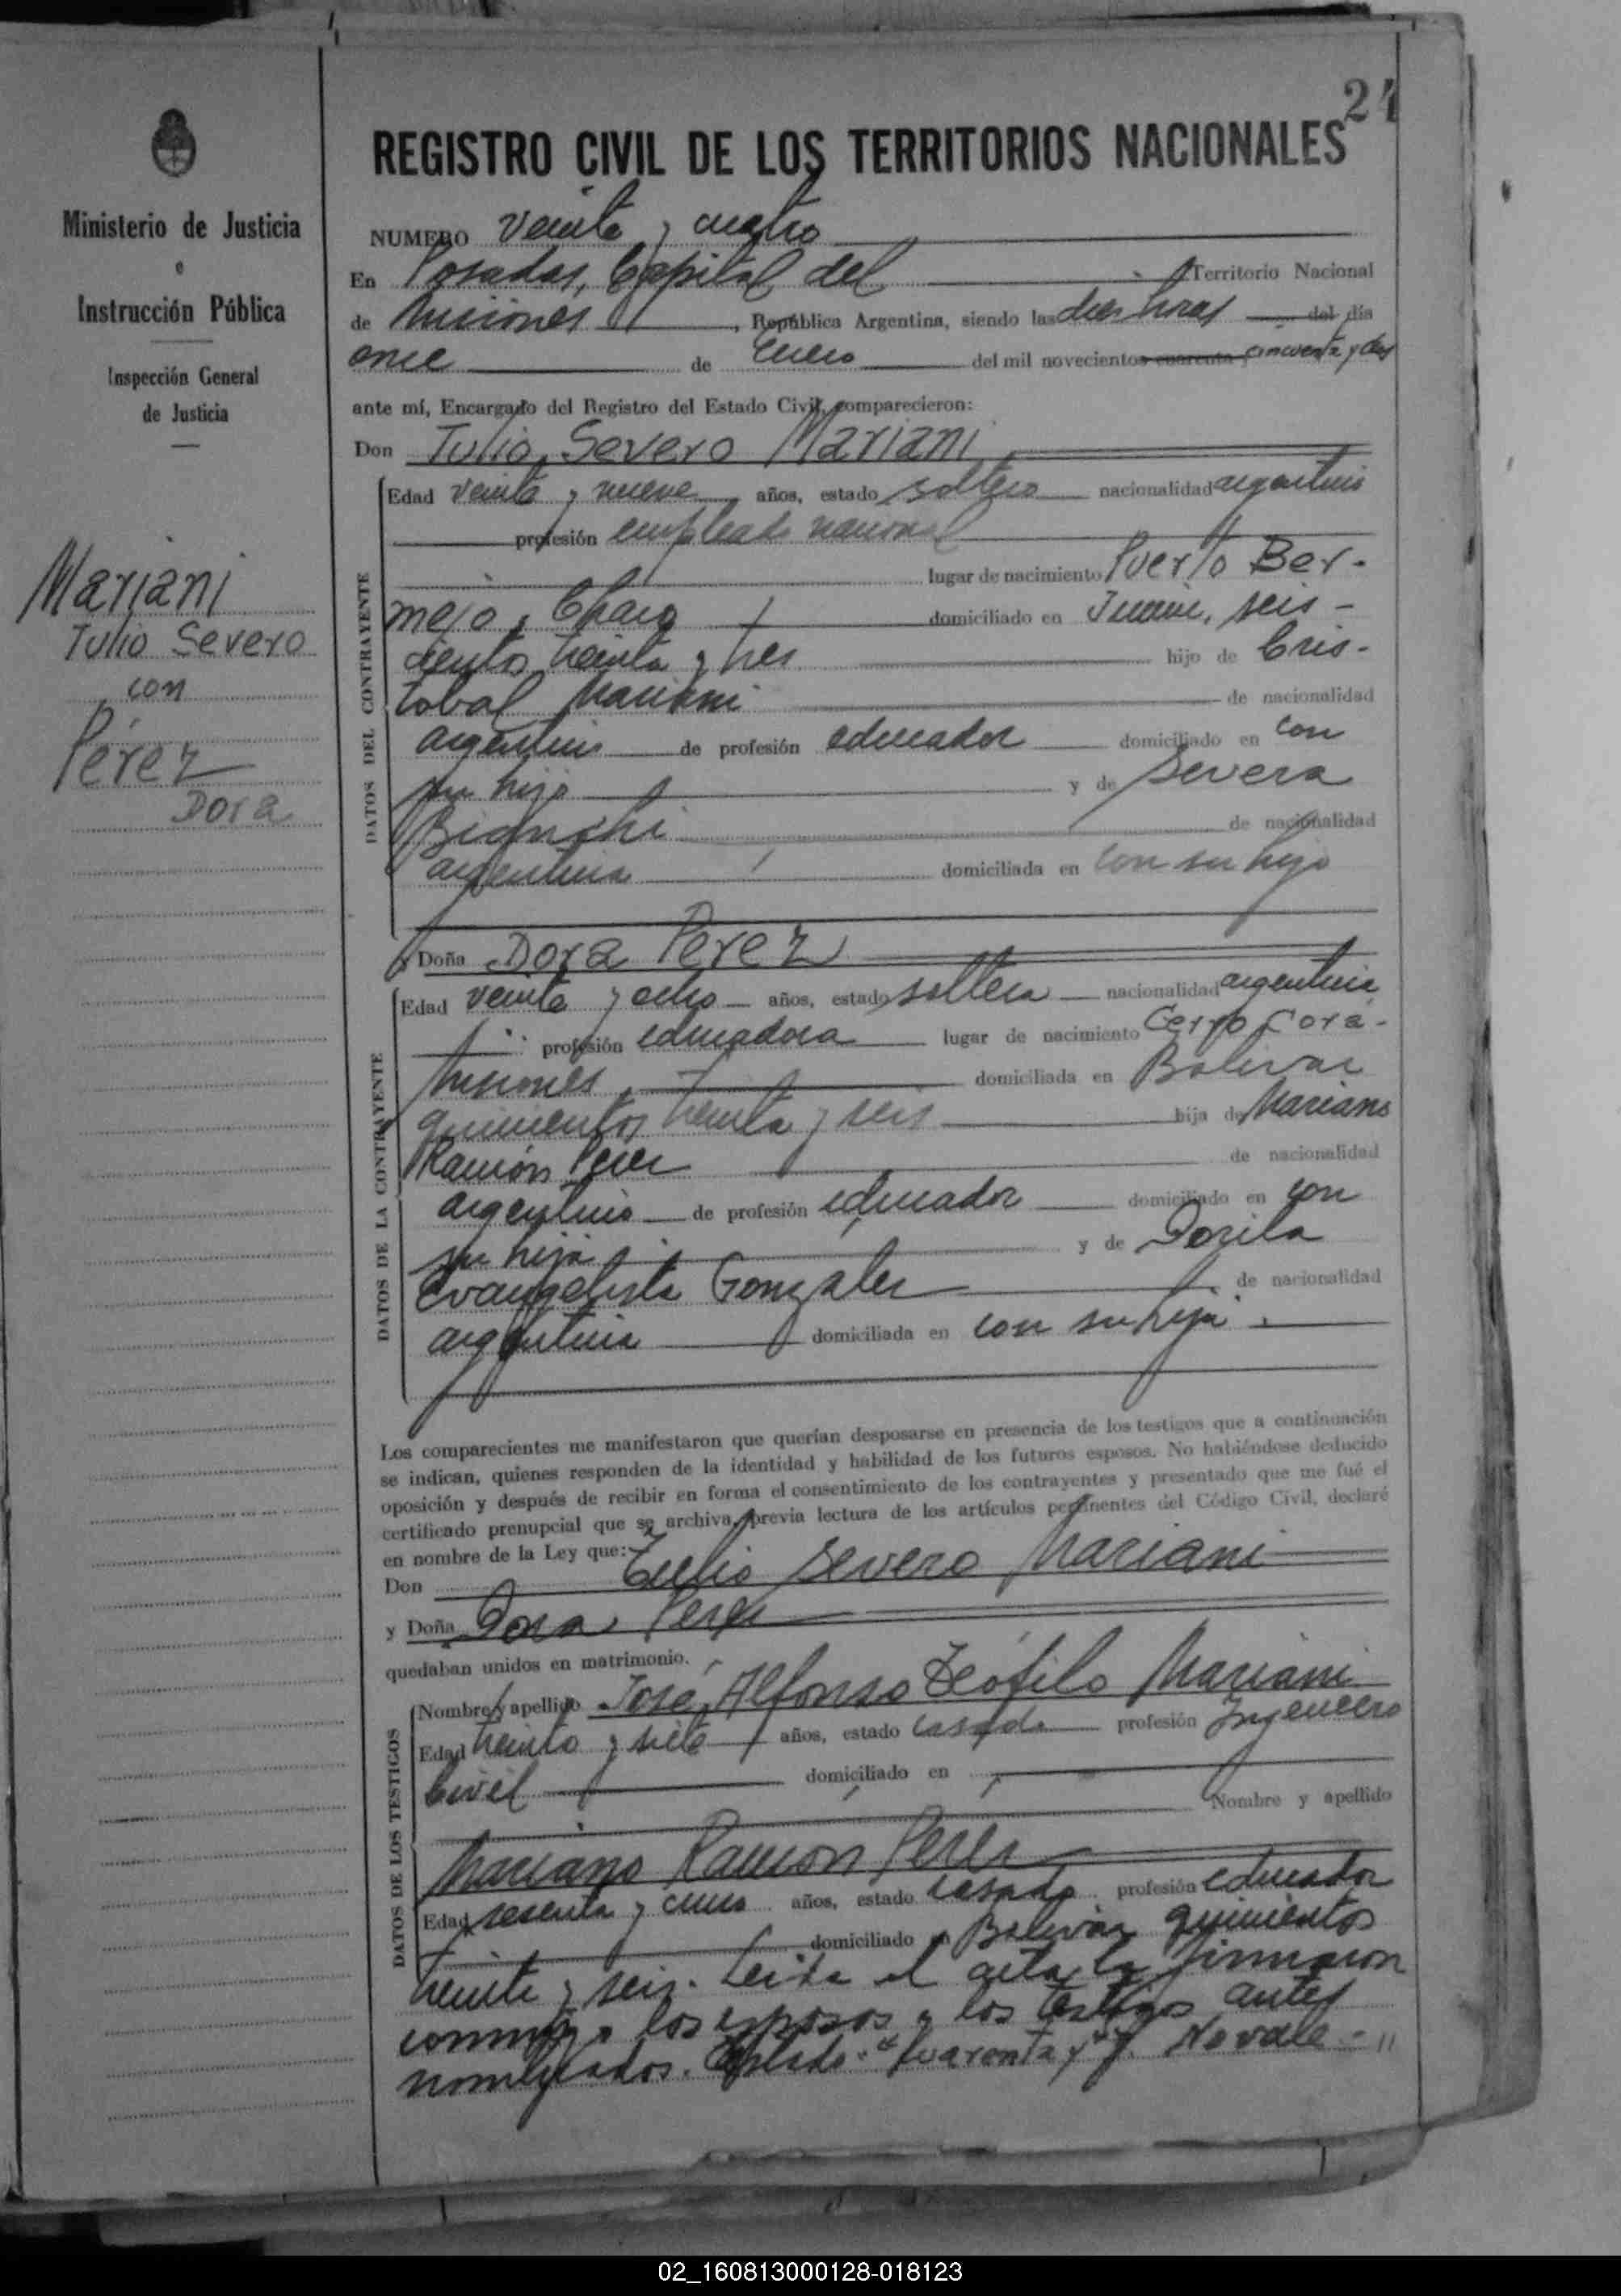 24
REGISTRO CIVIL DE LOS TERRITORIOS NACIONALES
Ministerio de Justicia
e
Instrucción Pública
Inspección General
de Justicia
Mariani
Tulio Severo
con
Pérez
Dora
NUMERO Veinte y cuatro
En Posadas, Capital del Territorio Nacional
de Misiones, República Argentina, siendo las diez horas del día
once de Enero del mil novecientos cuarenta y cincuenta y dos
ante mí, Encargado del Registro del Estado Civil, comparecieron:
Don Tulio Severo Mariani
DATOS DEL CONTRAYENTE
Edad veinte y nueve años, estado soltero nacionalidad argentino
profesión empleado nacional
lugar de nacimiento Puerto Ber-
mejo, Chaco domiciliado en Junin, seis-
cientos treinta y tres hijo de Cris-
tobal Mariani de nacionalidad
argentino de profesión educador domiciliado en con
su hijo y de Severa
Bianchi de nacionalidad
argentina domiciliada en con su hijo
y Doña Dora Perez
DATOS DE LA CONTRAYENTE
Edad veinte y ocho años, estado soltera nacionalidad argentina
profesión educadora lugar de nacimiento Cerro Corá-
Misiones, domiciliada en Bolivar
quinientos treinta y seis hija de Mariano
Ramón Perez de nacionalidad
argentino de profesión educador domiciliado en con
su hija y de Dorila
Evangelista Gonzalez de nacionalidad
argentina domiciliada en con su hija.
Los comparecientes me manifestaron que querían desposarse en presencia de los testigos que a continuación
se indican, quienes responden de la identidad y habilidad de los futuros esposos. No habiéndose deducido
oposición y después de recibir en forma el consentimiento de los contrayentes y presentado que me fué el
certificado prenupcial que se archiva, previa lectura de los artículos pertinentes del Código Civil, declaré
en nombre de la Ley que:
Don Tulio Severo Mariani
y Doña Dora Perez
quedaban unidos en matrimonio.
DATOS DE LOS TESTIGOS
Nombre y apellido José Alfonso Teófilo Mariani
Edad treinta y siete años, estado casado profesión Ingeniero
Civil domiciliado en
Nombre y apellido
Mariano Ramón Perez
Edad sesenta y cinco años, estado casado profesión educador
domiciliado en Bolivar quinientos
treinta y seis. Leida el acta la firmaron
conmigo los esposos y los testigos antes
nombrados. "cuarenta y" No vale.-
02_160813000128-018123